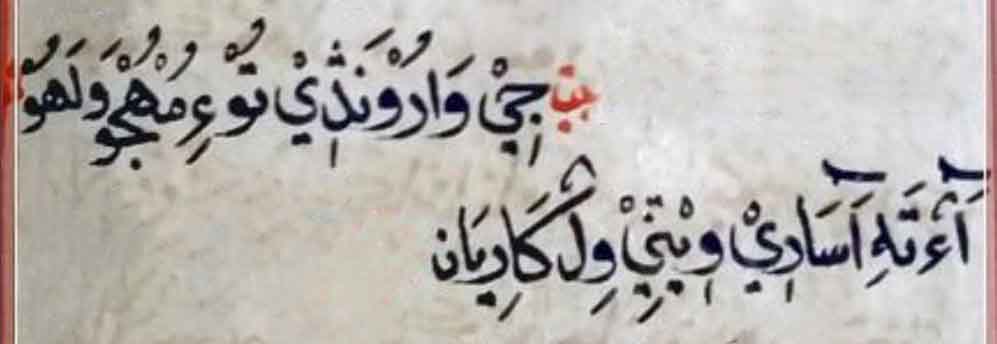 بيت جِيْ وَارُوْنَڎِيْ تُوْءِ مُهْجُوْ وَلَهُوْ
آءُ تَهِ آسَادِيْ وِيْتِيْ وِلُ كَادِيَان